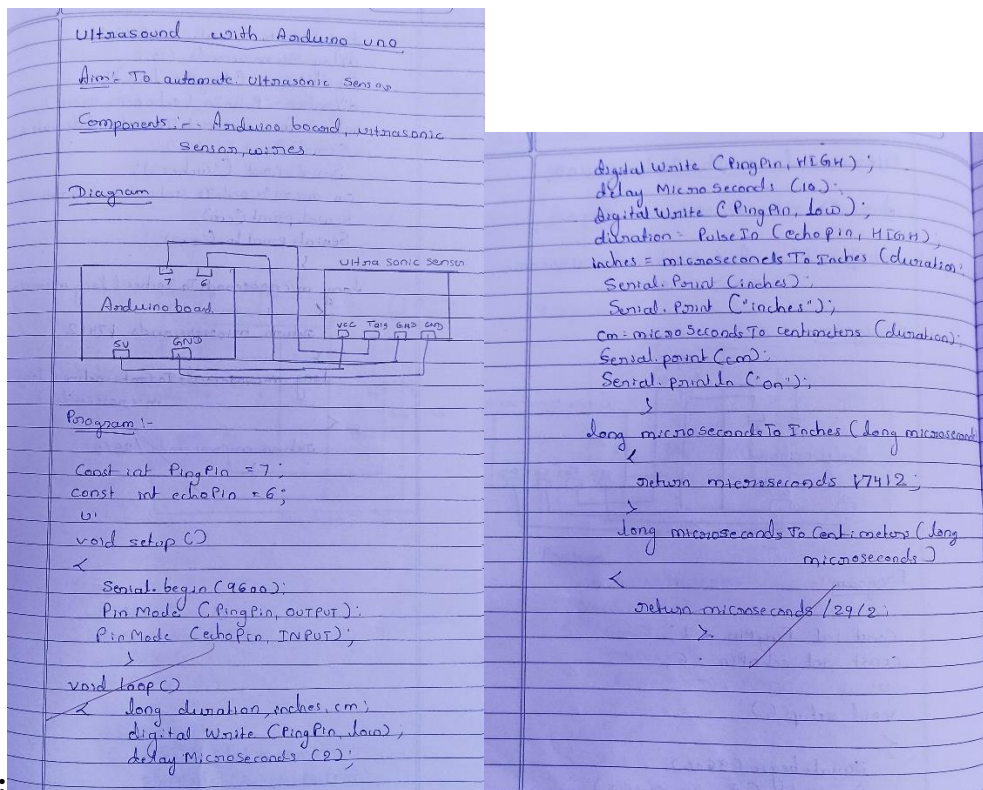 Ultrasound with Arduino uno
Aim:- To automate. Ultrasonic Sensor
Components:- Arduino board, ultrasonic
sensor, wires
Diagram
7 6
Arduino board
5V GND
Ultra Sonic Sensor
VCC Trig GND GND
Program:-
Const int PingPin = 7;
const int echoPin = 6;
void setup ()
{
Serial.begin (9600);
Pin Mode (PingPin, OUTPUT);
Pin Mode (echoPin, INPUT);
}
void loop ()
{ long duration, inches, cm;
digital Write (PingPin, low);
delay MicroSeconds (2);
digital Write (PingPin, HIGH);
delay Micro Seconds (10);
digital Write (PingPin, low);
duration = PulseIn (echopin, HIGH);
inches = microseconds To Inches (duration;
Serial. Print (inches);
Serial. Print ("inches");
cm = micro Seconds To centimeters (duration);
Serial.print (cm);
Serial. println ("cm");
}
long microseconds To Inches (long microseconds
{
return microseconds /74/2;
}
long microseconds To Centimeters (long
microseconds)
{
return microseconds /29/2;
}